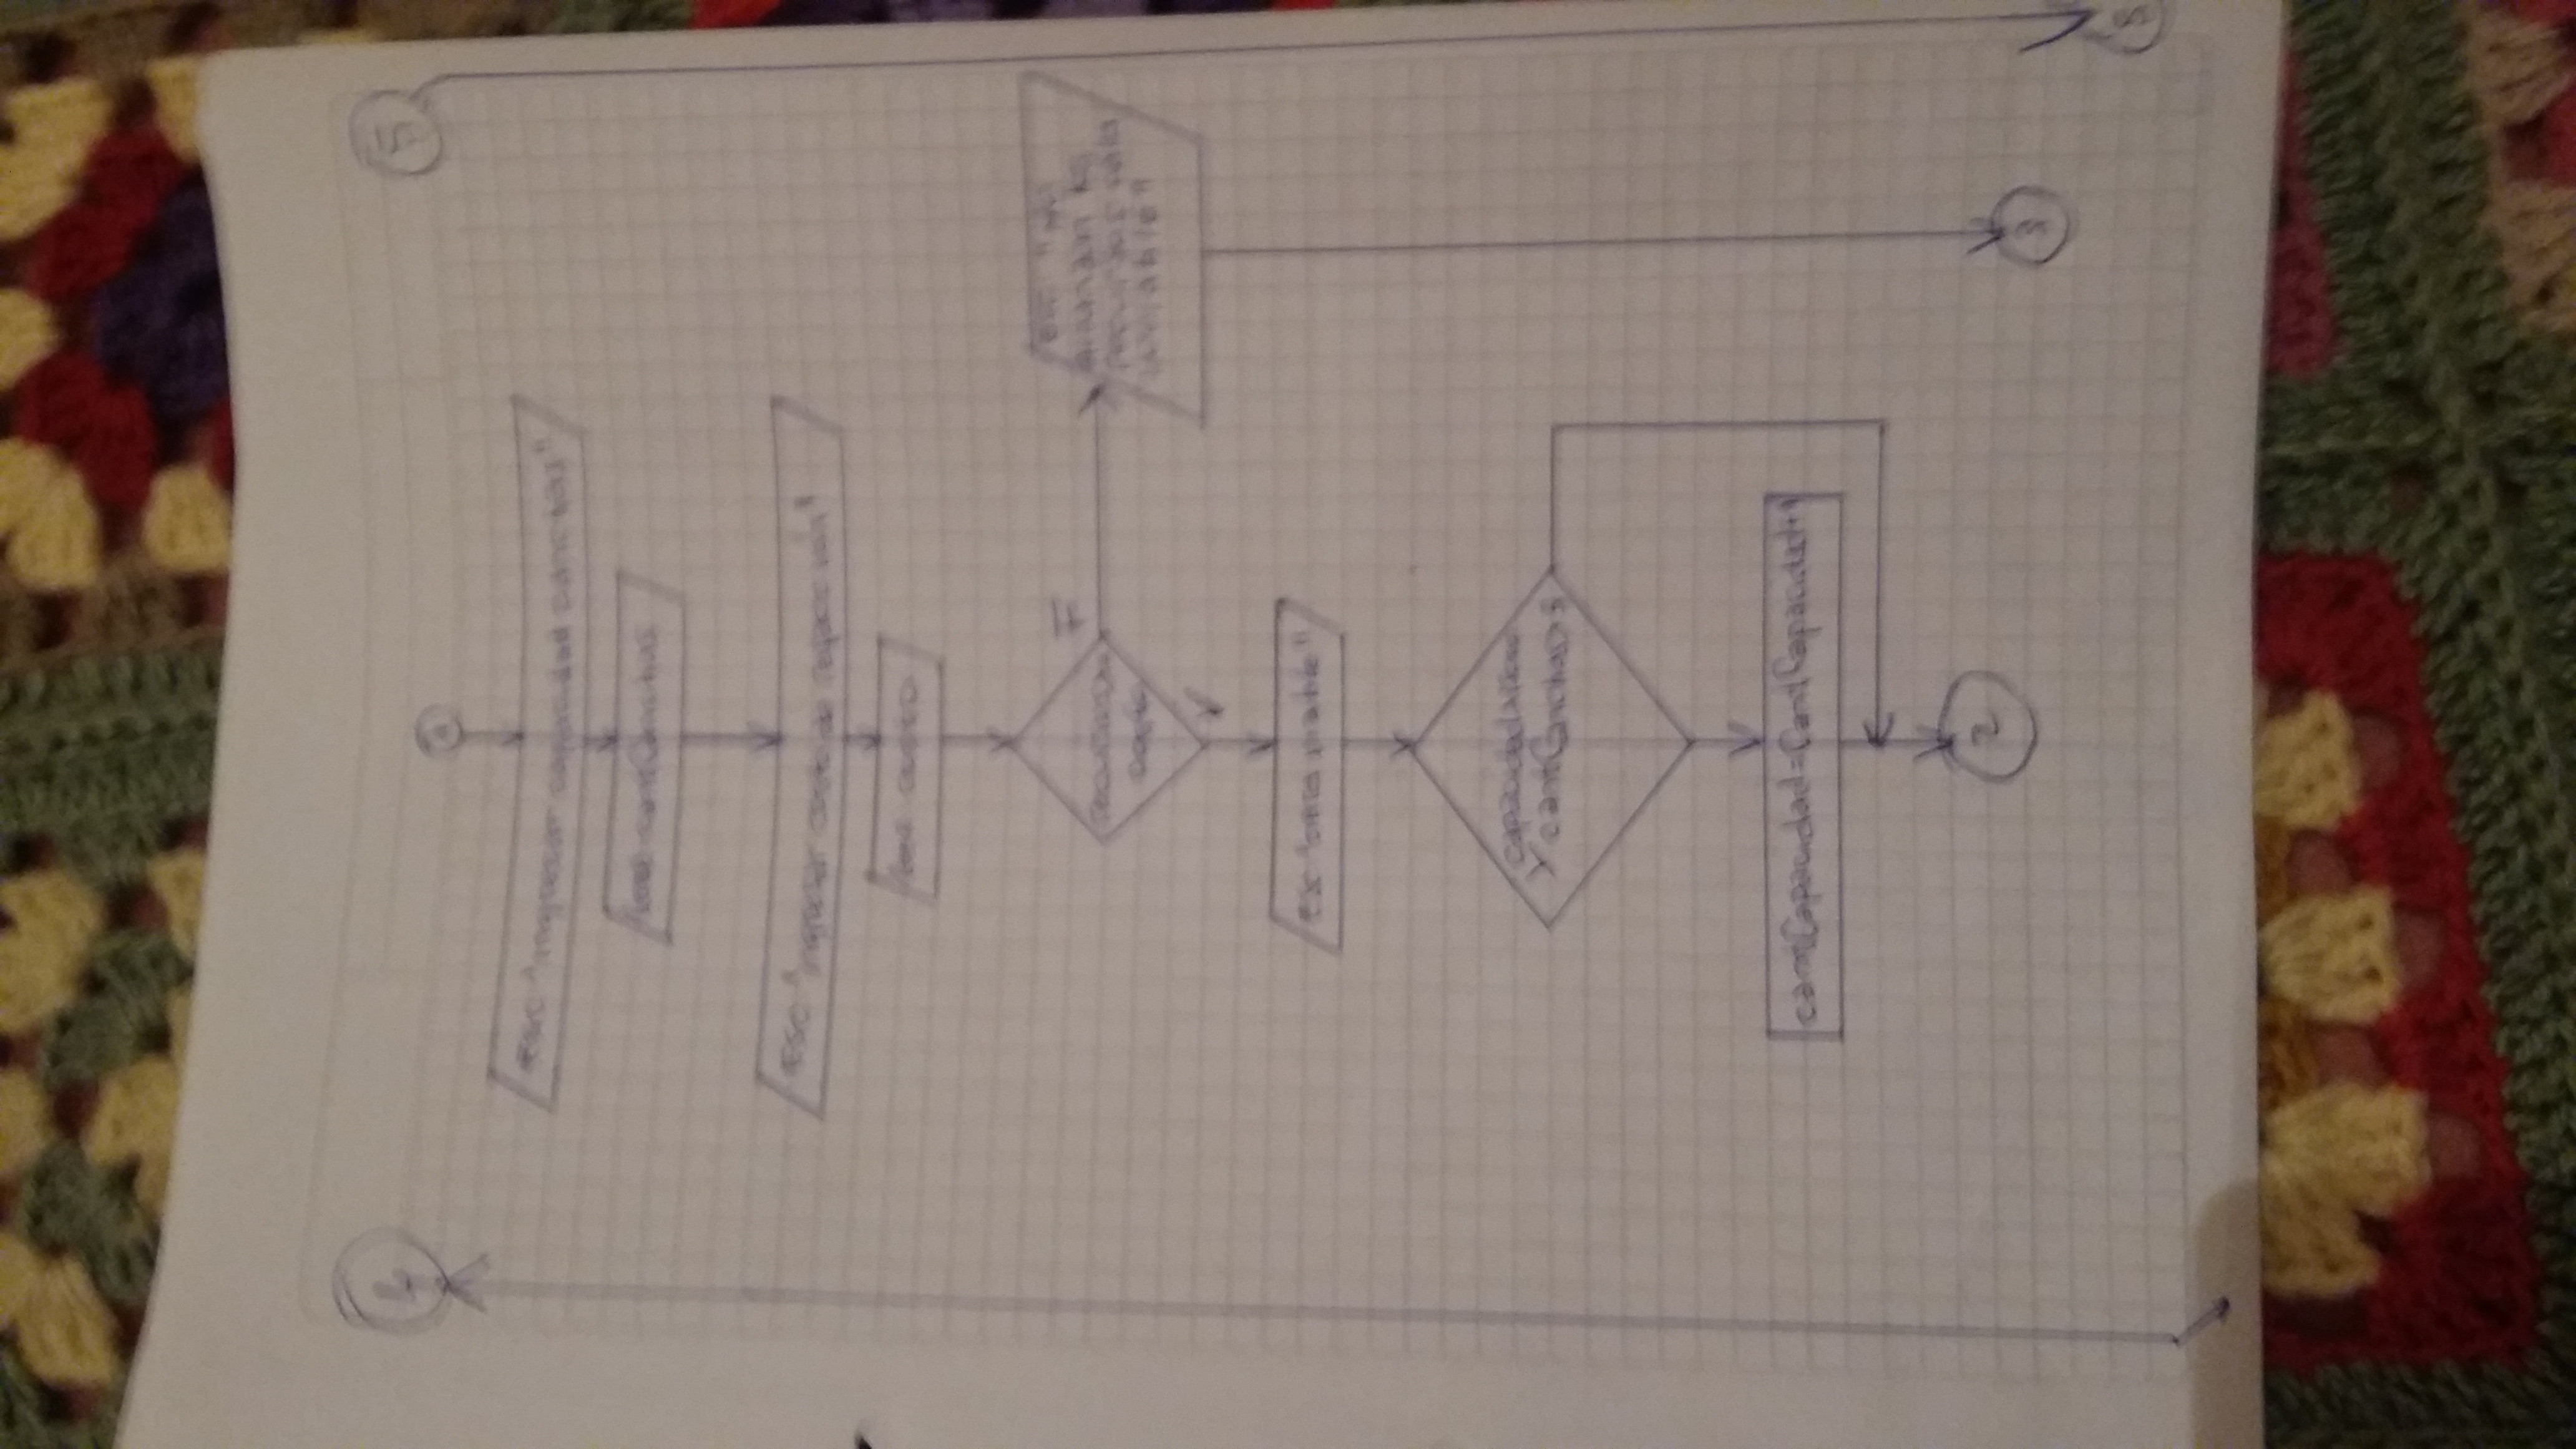 5
esc "ingresar capacidad canchas"
leer cantCanchas
esc "ingresar costo de reparación"
leer costo
F
costo
esc "no
alcanzan los
recursos
V
esc "obra viable"
capacidad
y cantCanchas> 5
cantCapacidad=CantCapacidad+1
2
3
5